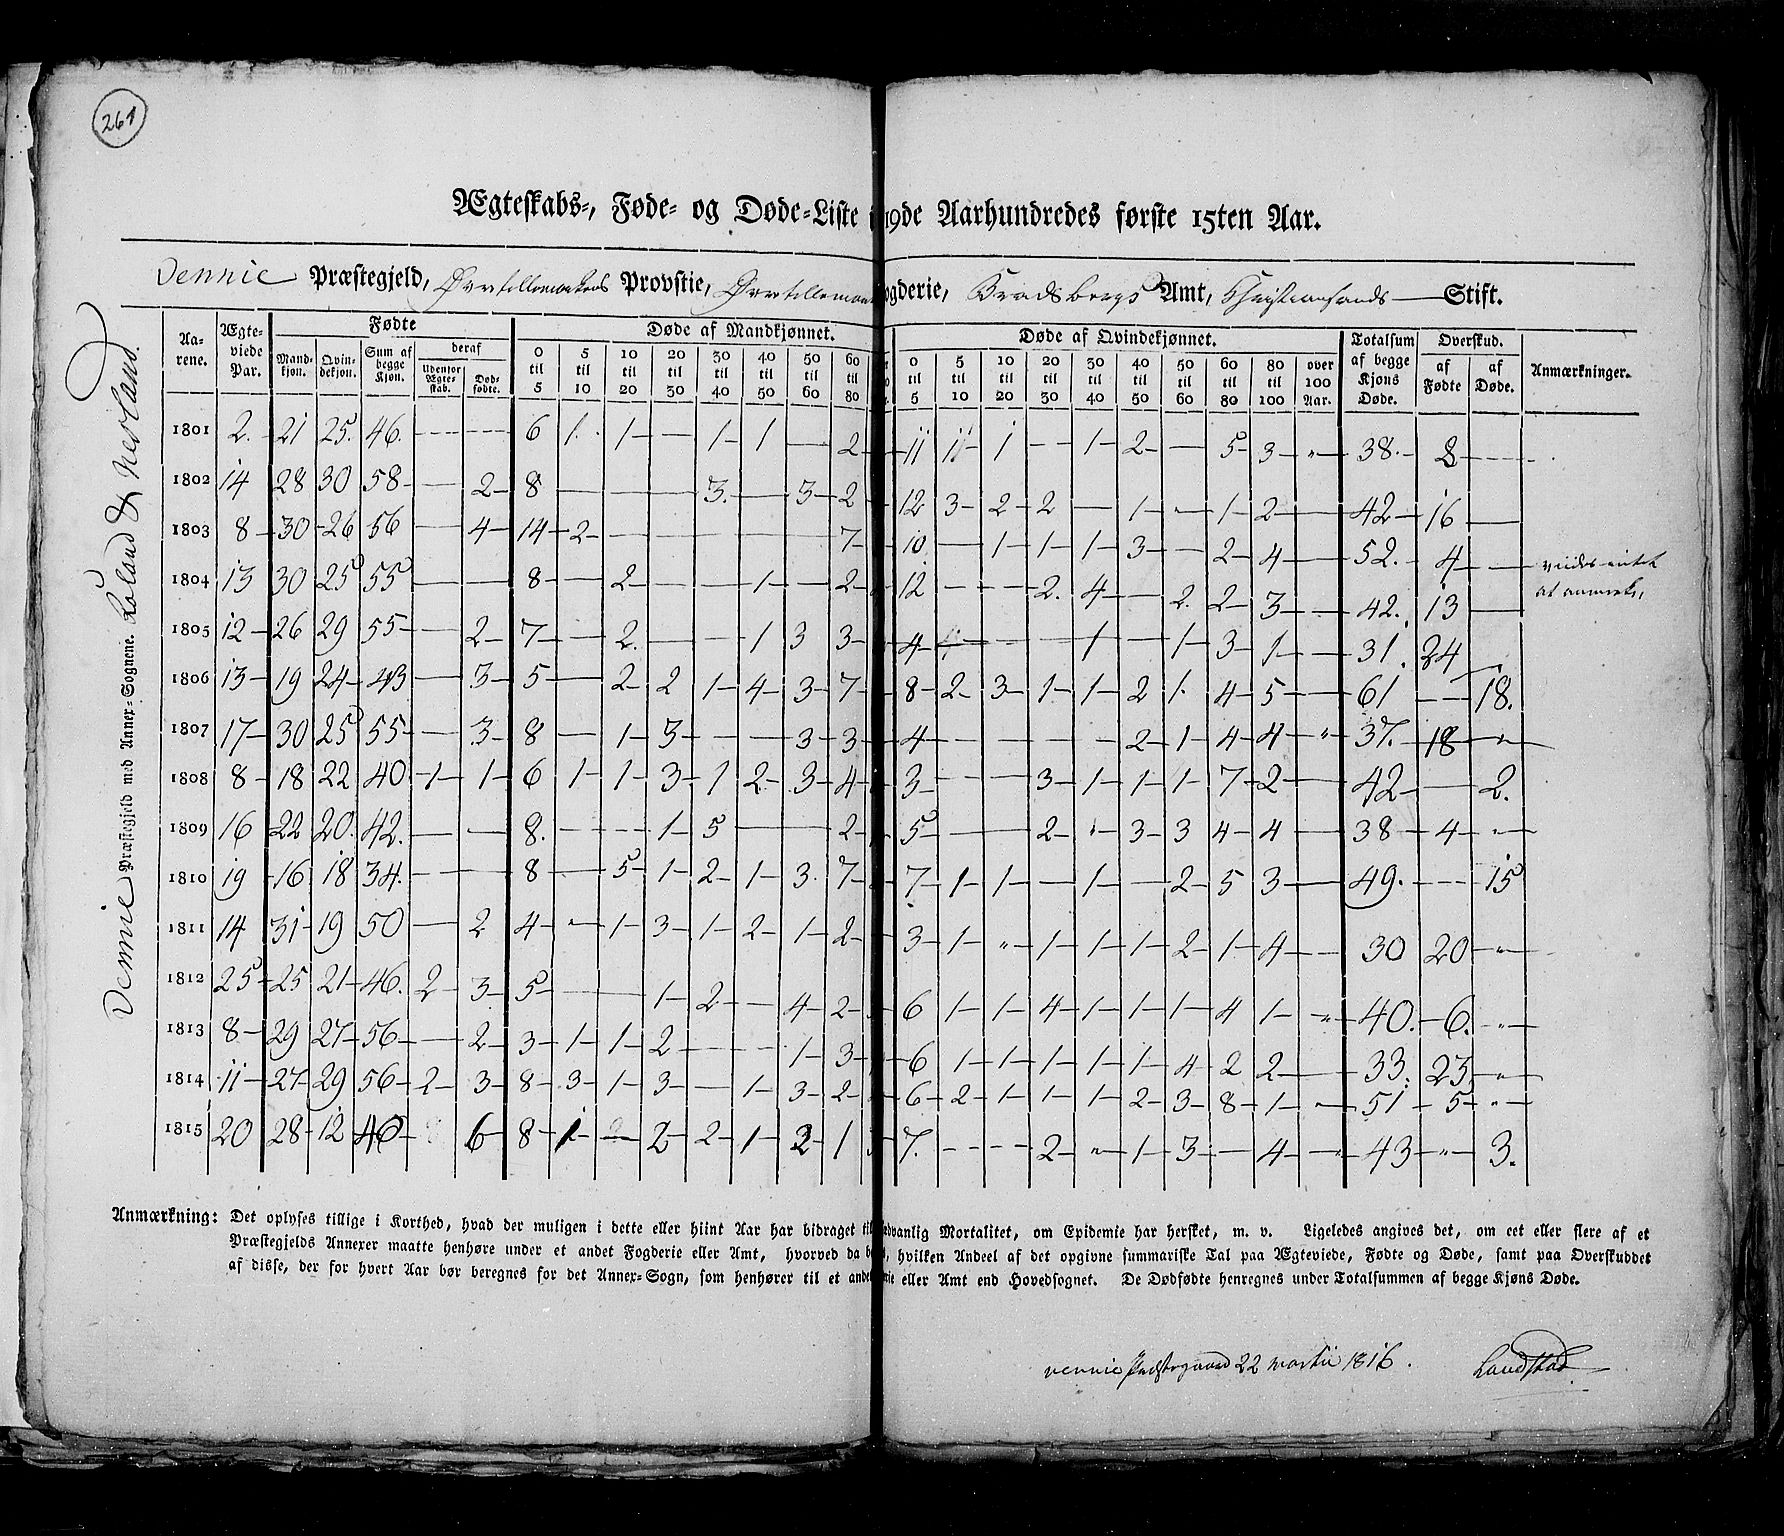 261
Ægteskabs-, Føde- og Døde-Liste i 19de Aarhundredes første 15ten Aar.
Vennie Præstegjeld, Øvretellemarkens Provstie, Øvretellemark ogderie, Bradsbergs Amt, Christiansands Stift.
Vennie Præstegjeld med Annex-Sognene.
Aarene. Ægteviede Par. Fødte Døde af Mandkjønnet. Døde af Qvindekjønnet. Totalsum af begge Kjøns Døde. Overskud. Anmærkninger.
Mandkjøn. Qvindekjøn. Sum af begge Kjøn. deraf Udenfor Ægteskab. Dødfødte. 0 til 5 5 til 10 10 til 20 20 til 30 30 til 40 40 til 50 50 til 60 60 til 80 0 til 5 5 til 10 10 til 20 20 til 30 30 til 40 40 til 50 50 til 60 60 til 80 80 til 100 over 100 Aar. af Fødte af Døde.
1801 2. 21 25. 46. — — 6 1. 1 — 1 1 — 2 11 11 1 — 1 2 — 5 3 „ 38. 8 —
1802 14 28 30 58 — 2 8 — — — 3. — 3 2 12 3 2 2 — 1 — 1 2 — 42 16 —
1803 8 30 26 56 — 4 14 2 — — — — — 7 10 — 1 1 1 3 — 2 4 — 52. 4 —
1804 13 30 25 55 — — 8 — 2 — — 1 — 2 12 — — 2. 4 — 2. 2 3 — 42. 13 —
1805 12 26 29 55 — 2 7 — 2. — — 1 3 3 4 — — — 1 — 1 3 1 — 31. 24
1806 13 19 24 43 — 3 5 — 2 2 1 4 3 7 8 2 3 1 1 2 1. 4 5 — 61 — 18.
1807 17 30 25 55 — 3 8 — 1 3 — — 3 3 4 — — — — 2 1 4 4 „ 37. 18 „
1808 8 18 22 40 1 1 6 1 1 3 1 2 3 4 3 — — 3 1 1 1 7 2 — 42 — 2.
1809 16 22 20. 42. — — 8. — — 1 5 — — 2 5 — — 2 „ 3 3 4 4 — 38 4 „
1810 19 16 18 34. — — 8 — 5 1 2 1 3. 7 7 1 1 — 1 — 2 5 3 — 49. — 15
1811 14 31 19 50 — 2 4 „ 1 3 1 2 1 2 3 1 „ 1 1 1 2 1 4 — 30 20 „
1812 25 25 21 46. 2 3 5 — — 1 2 — 4 2 6 1 1 4 1 1 1 4 1 „ 40. 6. „
1813 8 29 27 56 — 2 3 1 1 2 — — 1 3 6 1 1 1 1 1 4 2 2 — 33. 23. „
1814 11 27 29 56 2 3 8 3 1 3 — 1 3 2 6 2 1 1 1 2 3 8 1 „ 51 5 „
1815 20 28 12 40 6 8 1 2 2 1 2 1 7. — — 2 „ 1 3 — 4 „ 43 „ 3.
Anmærkning: Det oplyses tillige i Korthed, hvad der muligen i dette eller hiint Aar har bidraget til edvanlig Mortalitet, om Epidemie har hersket, m. v. Ligeledes angives det, om eet eller flere af et
Præstegjelds Annexer maatte henhøre under et andet Fogderie eller Amt, hvorved da be , hvilken Andeel af det opgivne summariske Tal paa Ægteviede, Fødte og Døde, samt paa Overskuddet
af disse, der for hvert Aar bør beregnes for det Annex-Sogn, som henhører til et andet rie eller Amt end Hovedsognet. De Dødfødte henregnes under Totalsummen af begge Kjøns Døde.
Vennie Præstegaard 22 Martii 1816. Landstad